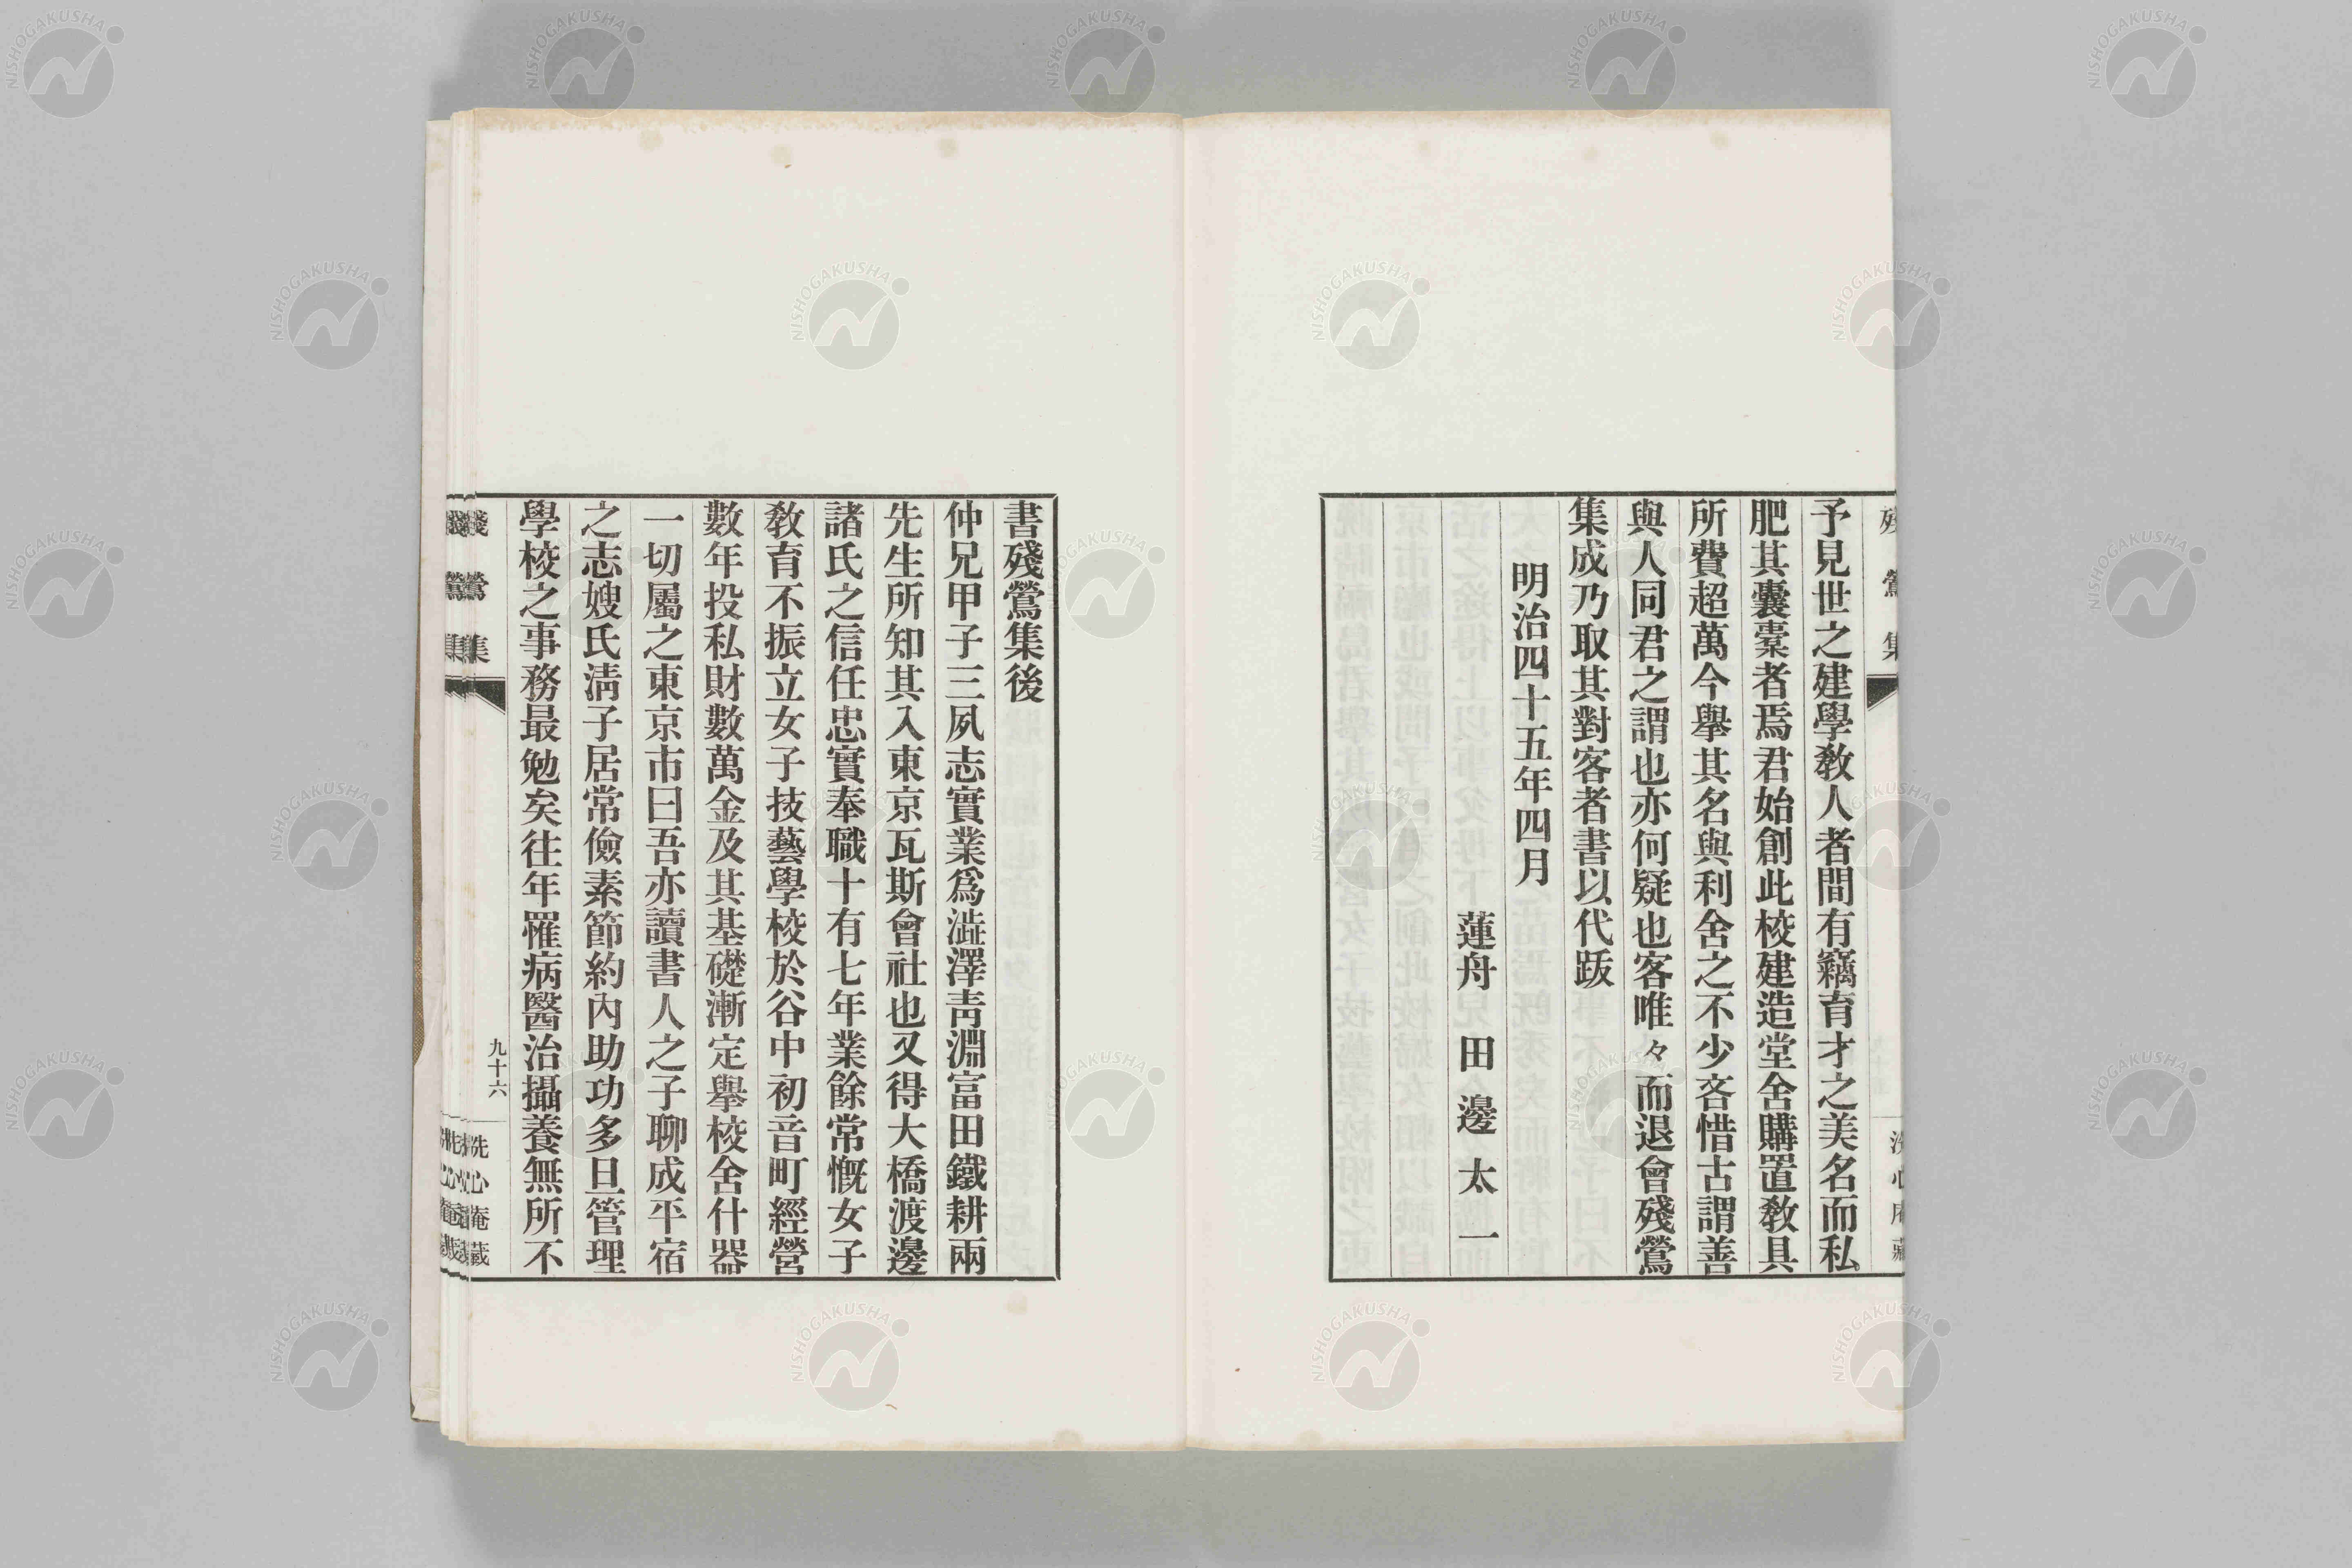 予見世之建學敎人者間有竊育才之美名而私
肥其囊槖者焉君始創此校建造堂舍購置敎具
所費超萬今擧其名與利舍之不少吝惜古謂善
與人同君之謂也亦何疑也客唯々而退會殘鶯
集成乃取其對客者書以代跋
明治四十五年四月
蓮舟 田邊太一
書殘鶯集後
仲兄甲子三夙志實業爲澁澤靑淵富田鐵耕兩
先生所知其入東京瓦斯會社也又得大橋渡邊
諸氏之信任忠實奉職十有七年業餘常慨女子
敎育不振立女子技藝學校於谷中初音町經營
數年投私財數萬金及其基礎漸定擧校舍什器
一切屬之東京市曰吾亦讀書人之子聊成平宿
之志嫂氏淸子居常儉素節約內助功多且管理
學校之事務最勉矣往年罹病醫治攝養無所不
殘鶯集
九十六
洗心庵藏
NISHOGAKUSHA